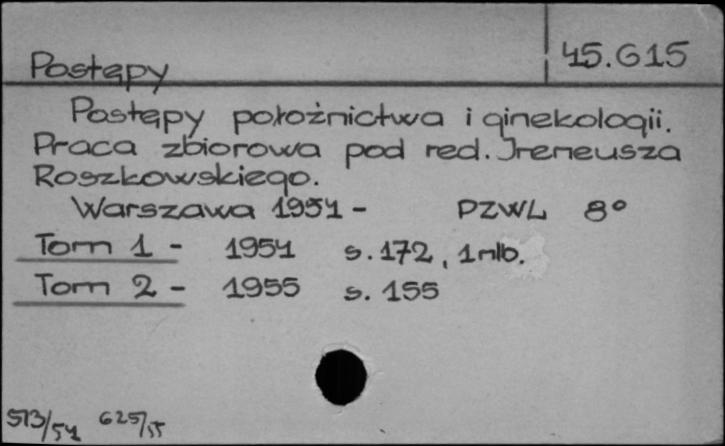 45.G15
Postępy
Postępy położnictwa i ginekologii.
Praca zbiorowa pod red. Ireneusza
Roszkowskiego.
Warszawa 1954 - PZWL 8°
Tom 1 - 1954 s. 172, 1 nlb.
Tom 2 - 1955 s. 155
513/54 625/55